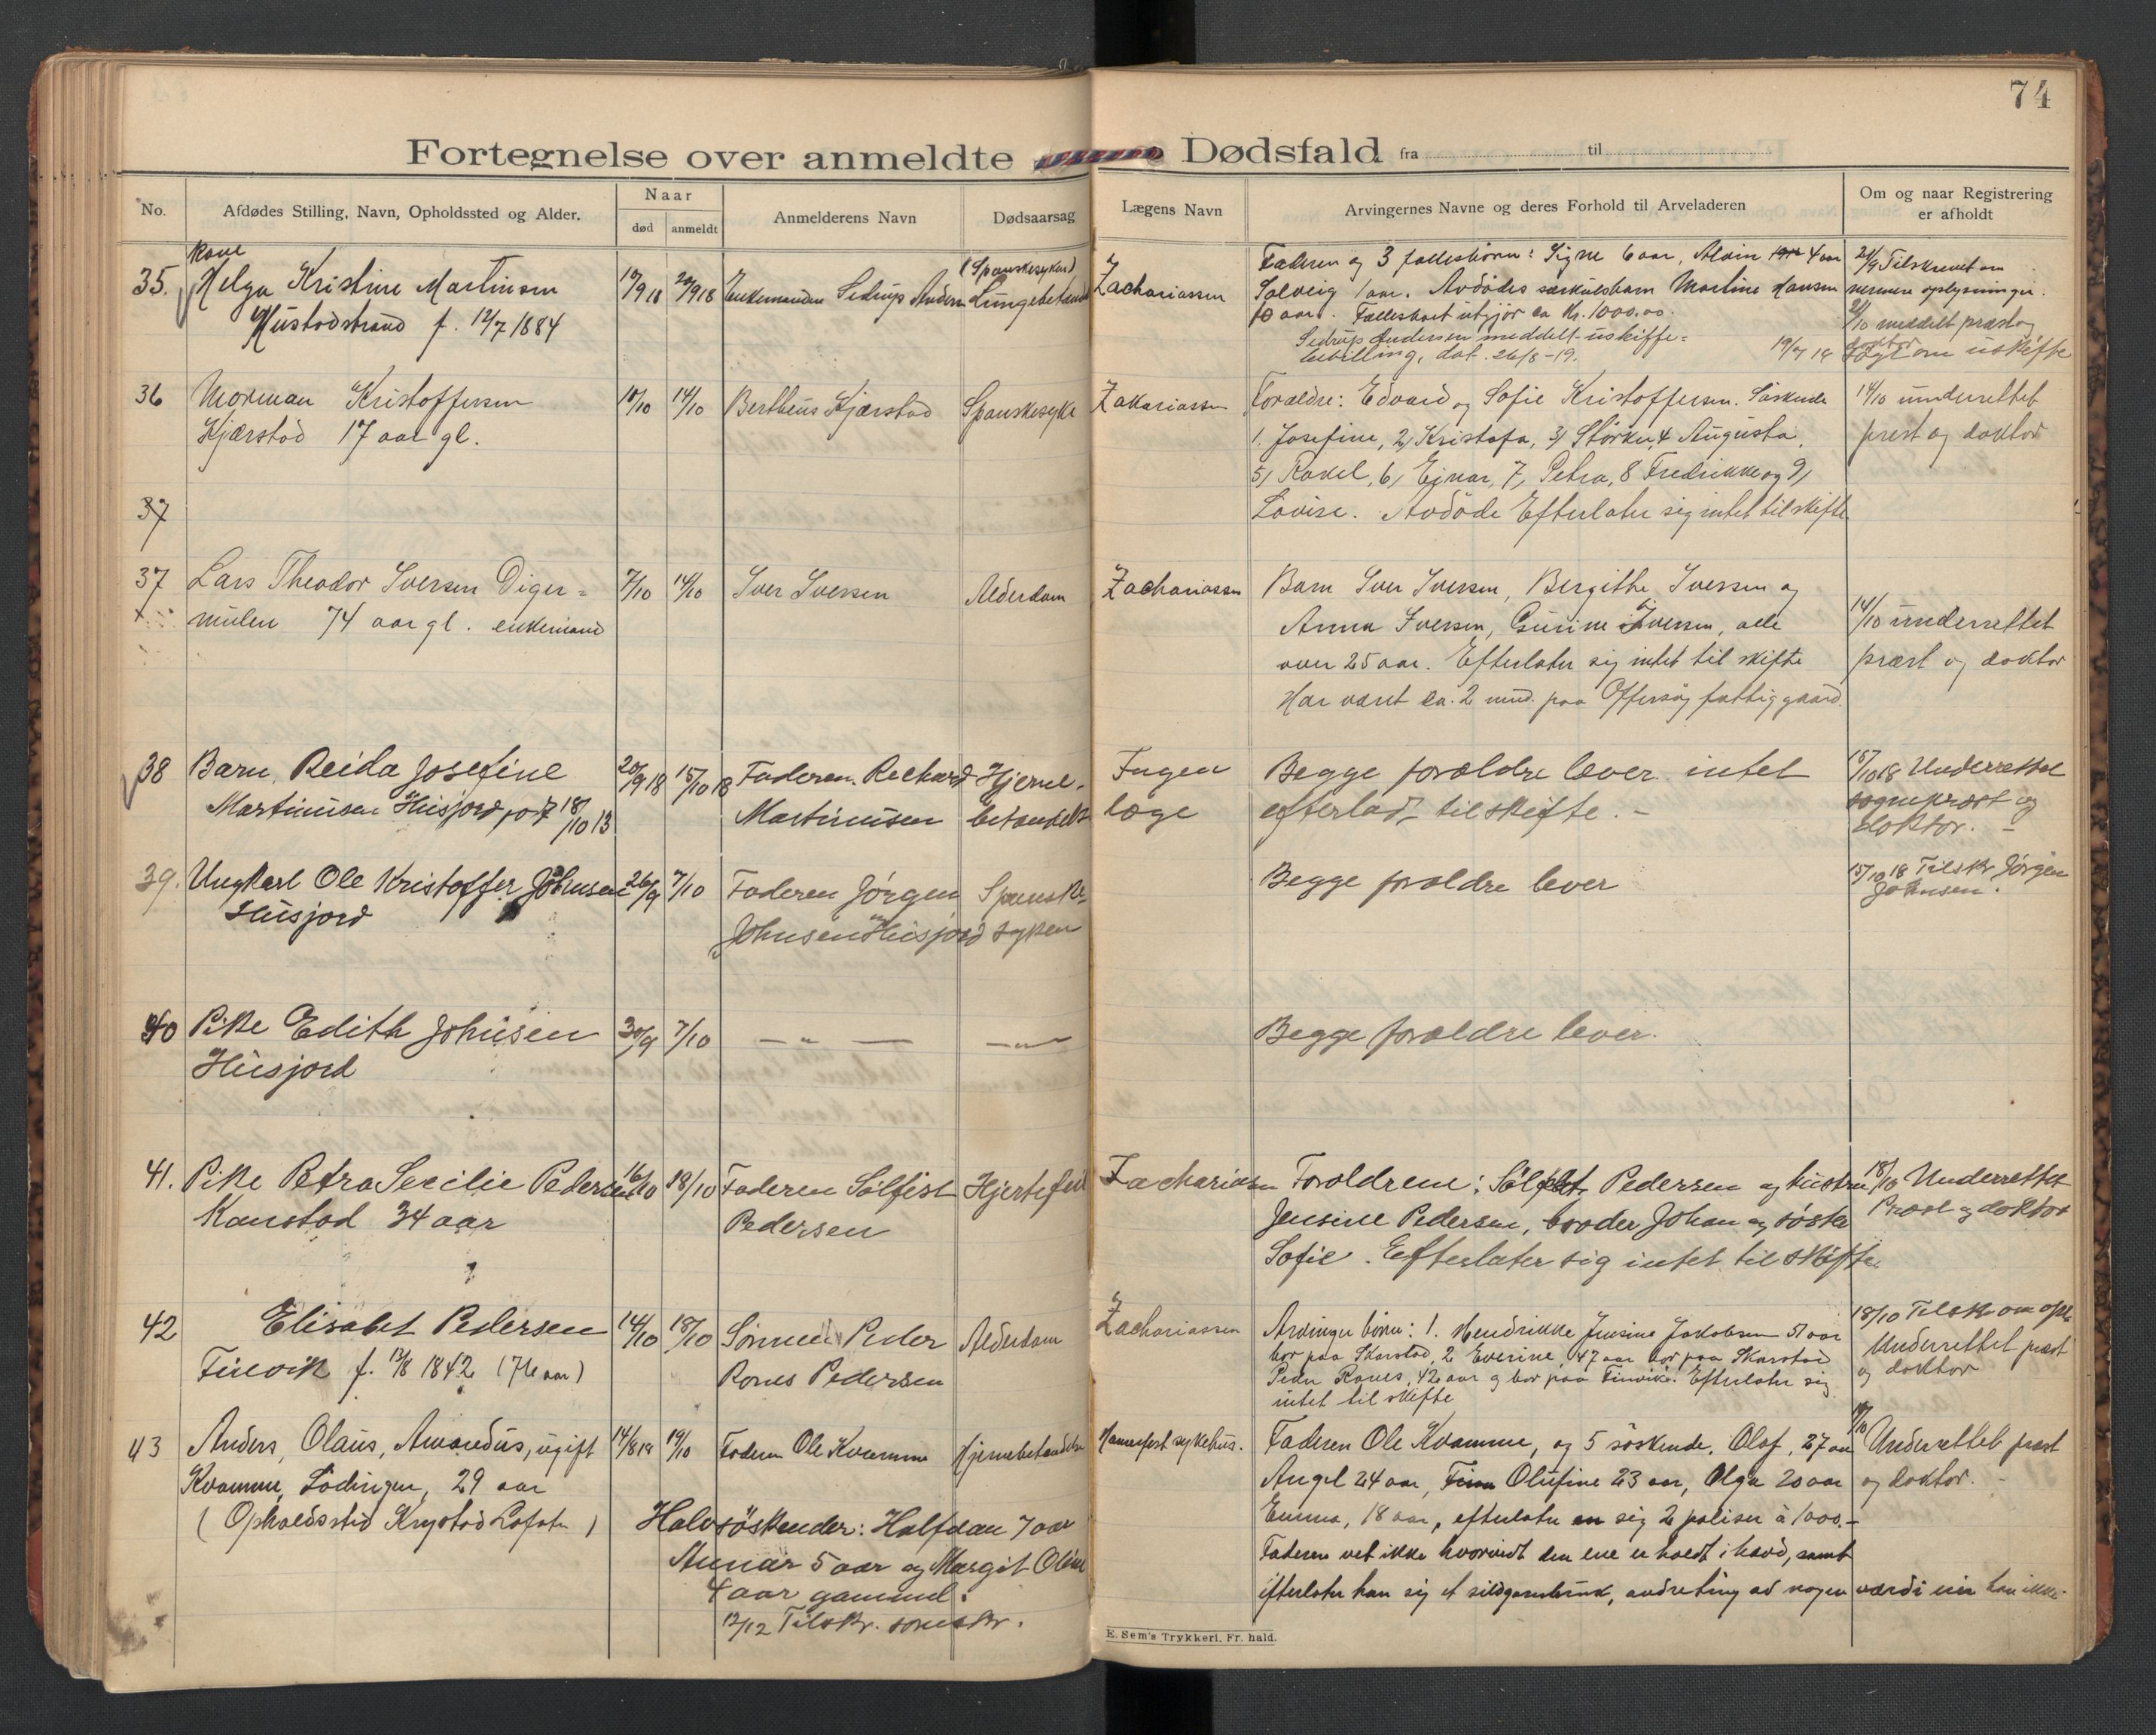 74
Fortegnelse over anmeldte Dødsfald fra til
No.
Afdødes Stilling, Navn, Opholdssted og Alder.
Naar
død
anmeldt
Anmelderens Navn
Dødsaarsag
Lægens Navn
Arvingernes Navne og deres Forhold til Arveladeren
Om og naar Registrering
er afholdt
35. Kone
Helga Kristine Martinsen
f. 12/7 1884
19/9 18
Enkemanden Sedrup Andersen
(Spanskesyken)
Zachariassen
Faderen og 3 fællesbørn: Signe 6 aar, Alvin 4 aar
Solveig 1 aar. Avdødes særkulsbarn Martine Hansen
10 aar. Fællesboet utgjør ca Kr. 1000.00.
Sedrup Andersen meddelt uskifte=
bevilling, dat. 26/8-19.
Tilskrevet om
nærmere oplysninger.
meddelt præst og
doktor
Søgt om uskifte
36
Norman Kristoffersen
Kjærstad 17 aar gl.
10/10
14/10
Bertheus Kjærstad
Spanskesyke
Zakariassen
Forældre: Edvard og Sofie Kristoffersen. Søskende
1. Josefine, 2) Kristofa, 3) Størker, 4 Augusta,
5) Rakel, 6) Ejnar, 7, Petra, 8 Fredrikke og 9)
Lovise. Avdøde Efterlater sig intet til skifte
14/10 underrettet
prest og doktor
37
37
Lars Theodor Iversen Diger=
mulen 74 aar gl. enkemand
7/10
14/10
Iver Iversen
Alderdom
Zachariassen
Barn Iver Iversen, Bergithe Iversen og
Anna Iversen, Gurine Iversen, alle
over 25 aar. Efterlater sig intet til skifte
Har været ca. 2 mnd. paa Offersøy fattiggaard.
14/10 underrettet
præst og doktor
38
Barn, Reida Josefine
Martinusen Husjord født 18/10 13
20/9 18
15/10 18
Faderen Rechard
Martinusen
Hjerne-
betændelse
Ingen
læge
Begge forældre lever. intet
efterladt til skifte. -
15/10 18 Underrettet
sogneprest og
doktor. -
39.
Ungkarl Ole Kristoffer Johnsen
Husjord
26/9
7/10
Faderen Jørgen
Johnsen Husjord
Spanske-
syken
Begge forældre lever
15/10 18 Tilskr Jørgen
Johnsen.
40
Pike Edith Johnsen
Husjord
30/9
7/10
— „ —
— „ —
Begge forældre lever.
41.
Pike Petra Secilie Pedersen
Kanstad 34 aar
16/10
18/10
Faderen Sølfest
Pedersen
Hjertefeil
Zachariassen
Forældrene: Sølfest Pedersen og hustru
Jensine Pedersen, broder Johan og søster
Sofie. Efterlater sig intet til skifte.
18/10 Underrettet
Præst og doktor
42
Elisabet Pedersen
Finvik f. 13/8 1842 (76 aar)
14/10
18/10
Sønnen Peder
Rones Pedersen
Alderdom
Zachariassen
Arvinger børn: 1. Hendrikke Jensine Jakobsen 51 aar
bor paa Skarstad, 2 Everine, 47 aar bor paa Skarstad
Peder Rones, 42 aar og bor paa Finvik. Efterlater sig
intet til skifte
18/10 Tilskr om opl.
Underrettet præst
og doktor
43
Anders, Olaus, Amandus, ugift
Kvamme, Lødingen, 29 aar
(Opholdssted Krystad Lofoten)
14/8 18
19/10
Faderen Ole Kvamme
Hjernebetændelse
Hammerfest sykehus.
Halvsøskender: Halfdan 7 aar
Annar 5 aar og Margit Oline
4 aar gammel.
12/12 Tilskr.
Faderen Ole Kvamme, og 5 søskende, Olaf, 27 aar
Angel 24 aar, Olufine 23 aar, Olga 20 aar
Emma, 18 aar, efterlater sig 2 poliser à 1000.-
Faderen vet ikke hvorvidt den ene er holdt i hævd, samt
efterlater han sig et sildgarnbruk, andre ting av nogen værdi eier han ikke.
Underrettet præst
og doktor. -
E. Sem's Trykkeri, Fr. hald.